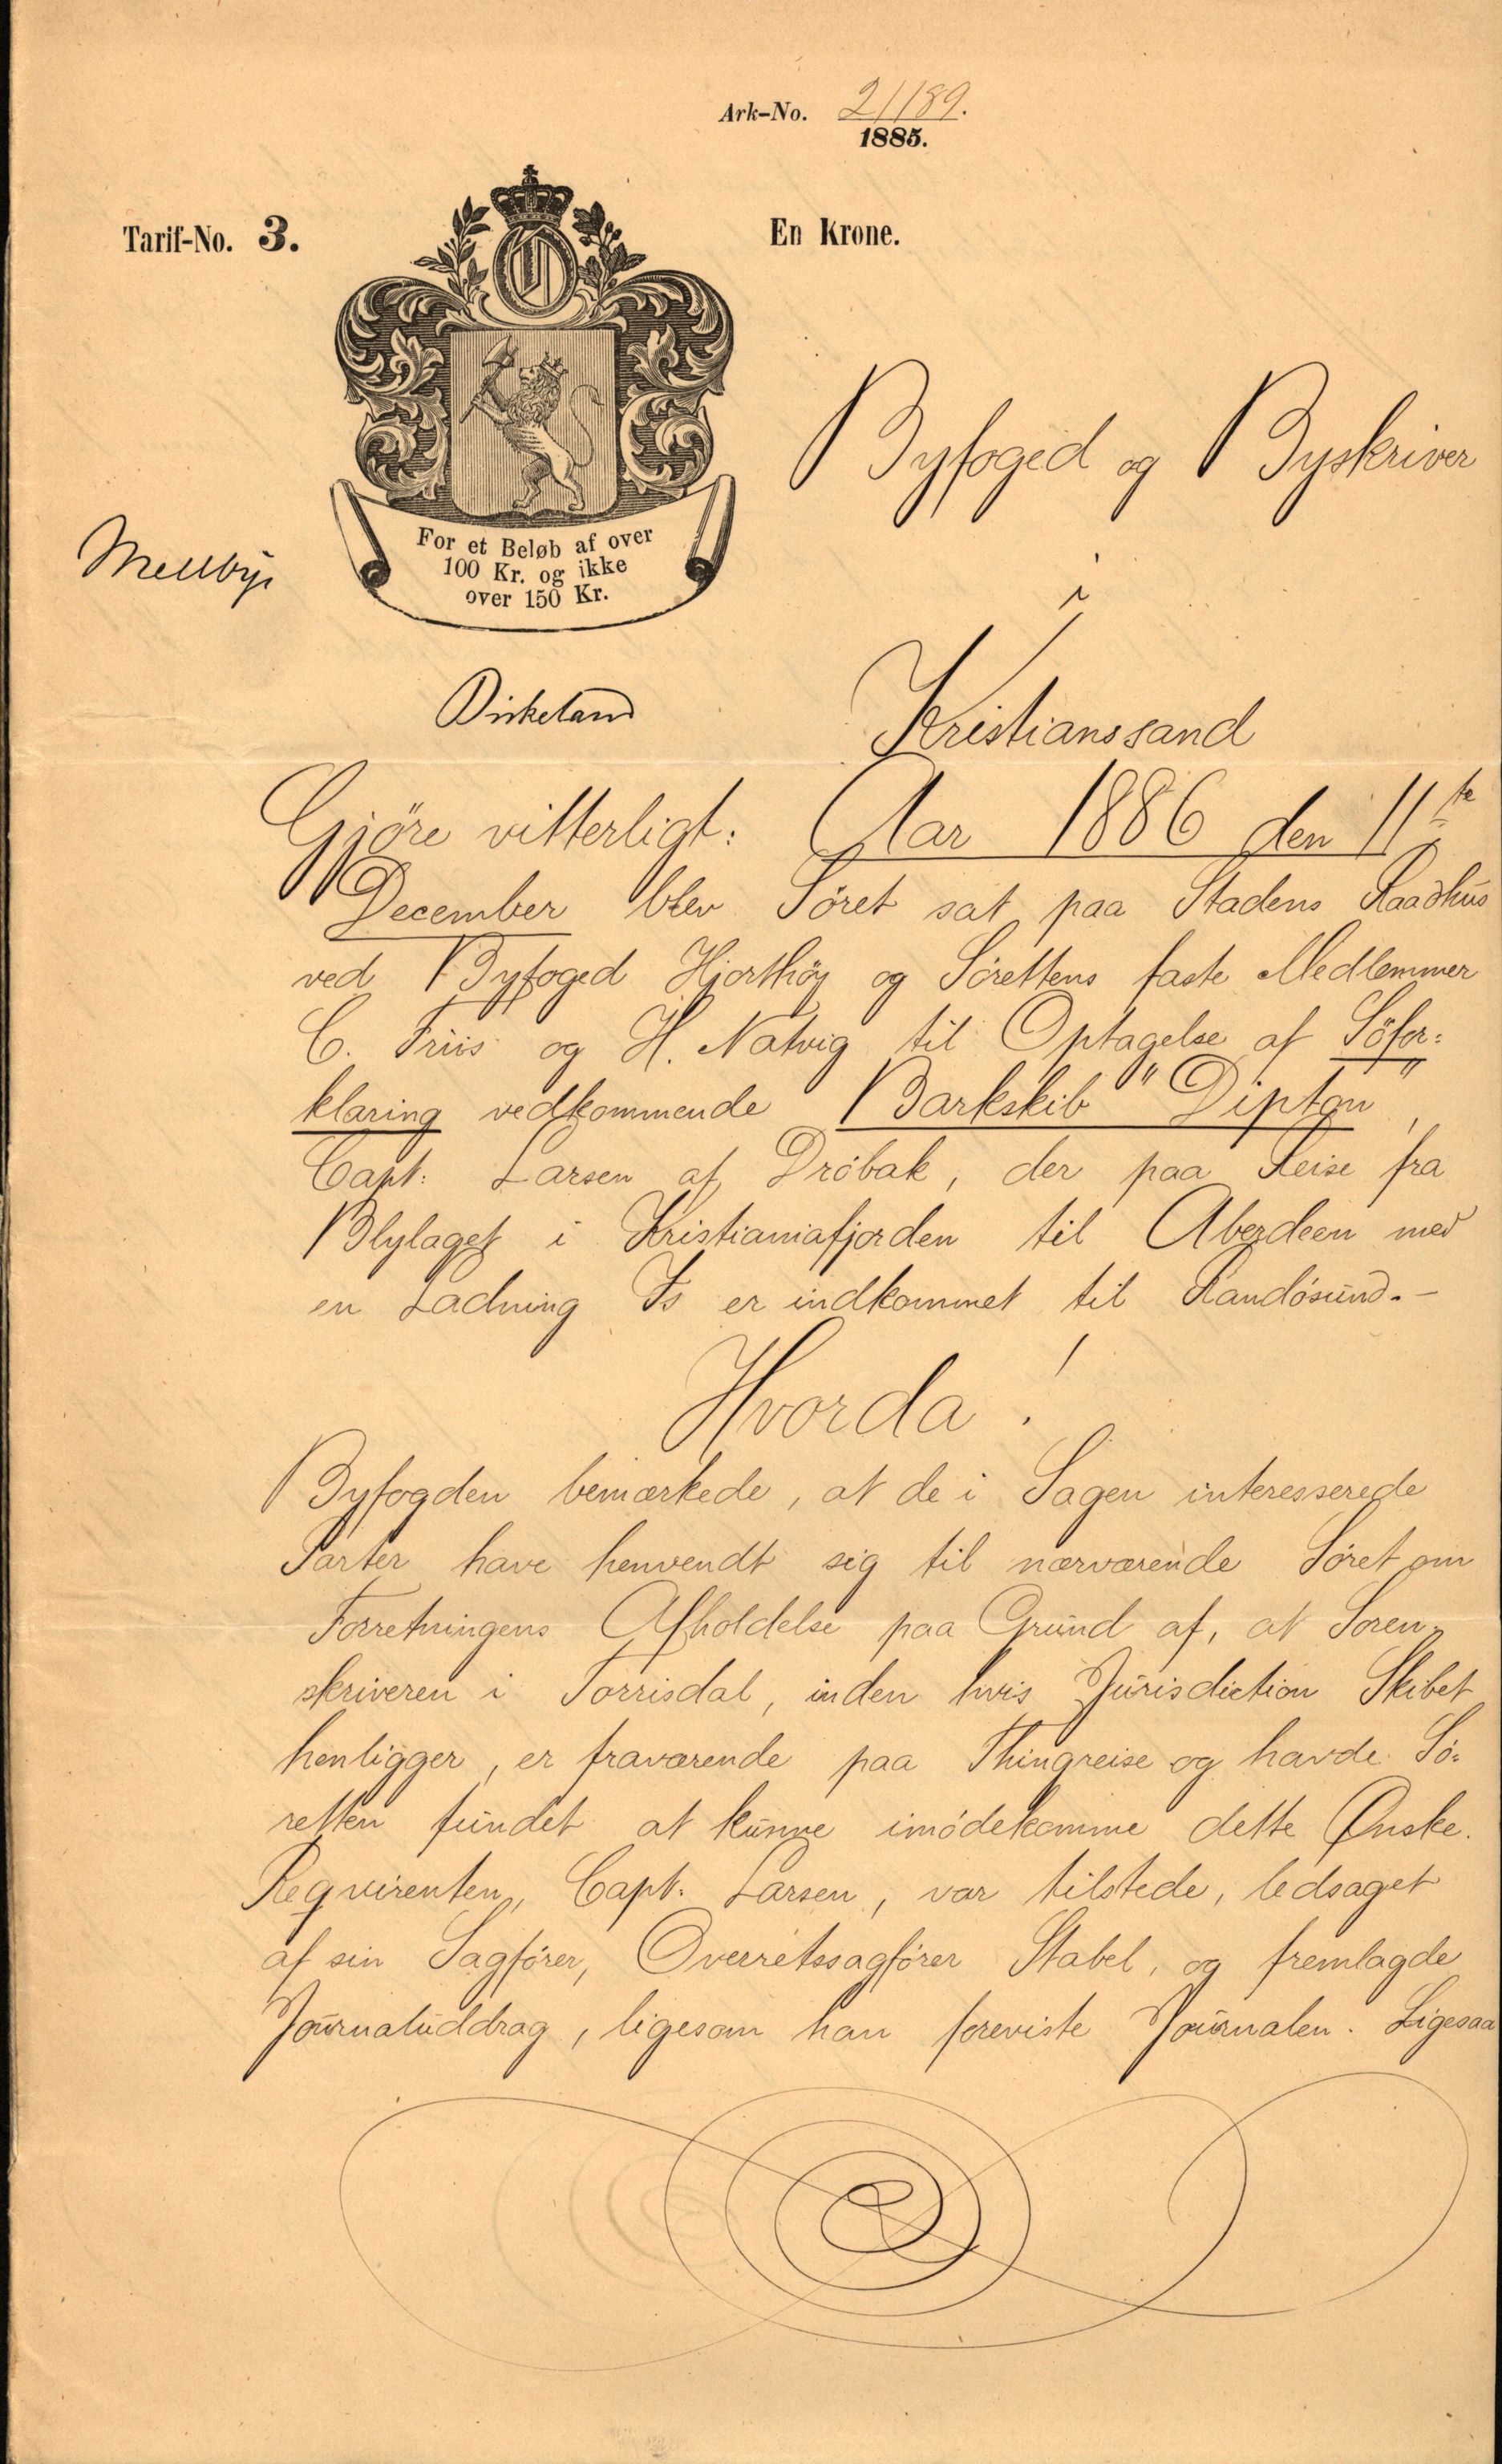 Ark-No. 21189.
1885.
Tarif-No. 3.
En Krone.
For et Beløb af over
100 Kr. og ikke
over 150 Kr.
Mellbye
Birkeland
Byfoged og Byskriver
i
Kristianssand
Gjöre vitterligt: Aar 1886 den 11te
December blev Söret sat paa Stadens Raadhus
ved Byfoged Hjorthöy og Sörettens faste Medlemmer
C. Friis og H. Natvig til Optagelse af Söfor:
klaring vedkommende Barkskib "Dipton",
Capt: Larsen af Dröbak, der paa Reise fra
Blylaget i Kristianiafjorden til Aberdeen med
en Ladning Is er indkommet til Randösund.-
Hvorda!
Byfogden bemærkede, at de i Sagen interesserede
Parter have henvendt sig til nærværende Söret om
Forretningens Afholdelse paa Grund af, at Soren-
skriveren i Torrisdal, inden hvis Jurisdiction Skibet
henligger, er fraværende paa Thingreise og havde Sö-
retten fundet at kunne imödekomme dette Ønske.
Reqvirenten, Capt. Larsen, var tilstede, ledsaget
af sin Sagförer, Overretssagförer Stabel, og fremlagde
Journaluddrag, ligesom han foreviste Journalen. Ligesaa